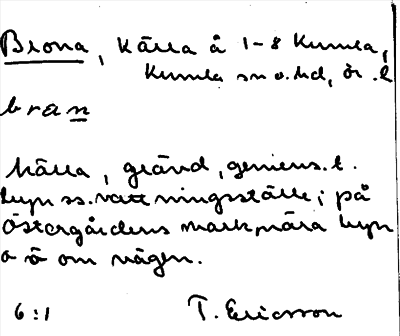 Brona, Källa å 1-8 Kumla,
Kumla sn o. hd, ör. l
bran
Källa, grävd, gemens. t.
byn ss. vattningsställe; på
Östergårdens mark nära byn
o ö om vägen.
6:1 T. Ericsson